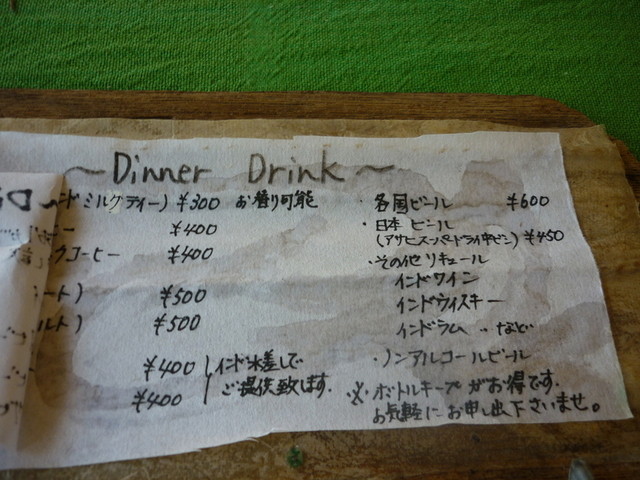 ~Dinner Drink~
ンドミルクティー) ¥300 お替り可能
ー ¥400
クコーヒー ¥400
ート) ¥500
ルト) ¥500
¥400 インド水差しで
¥400 ご提供致します。
・各国ビール ¥600
・日本ビール
(アサヒスーパードライ中ビン) ¥450
・その他リキュール
インドワイン
インドウィスキー
インドラム ‥など
・ノンアルコールビール
※ボトルキープがお得です。
お気軽にお申し出下さいませ。